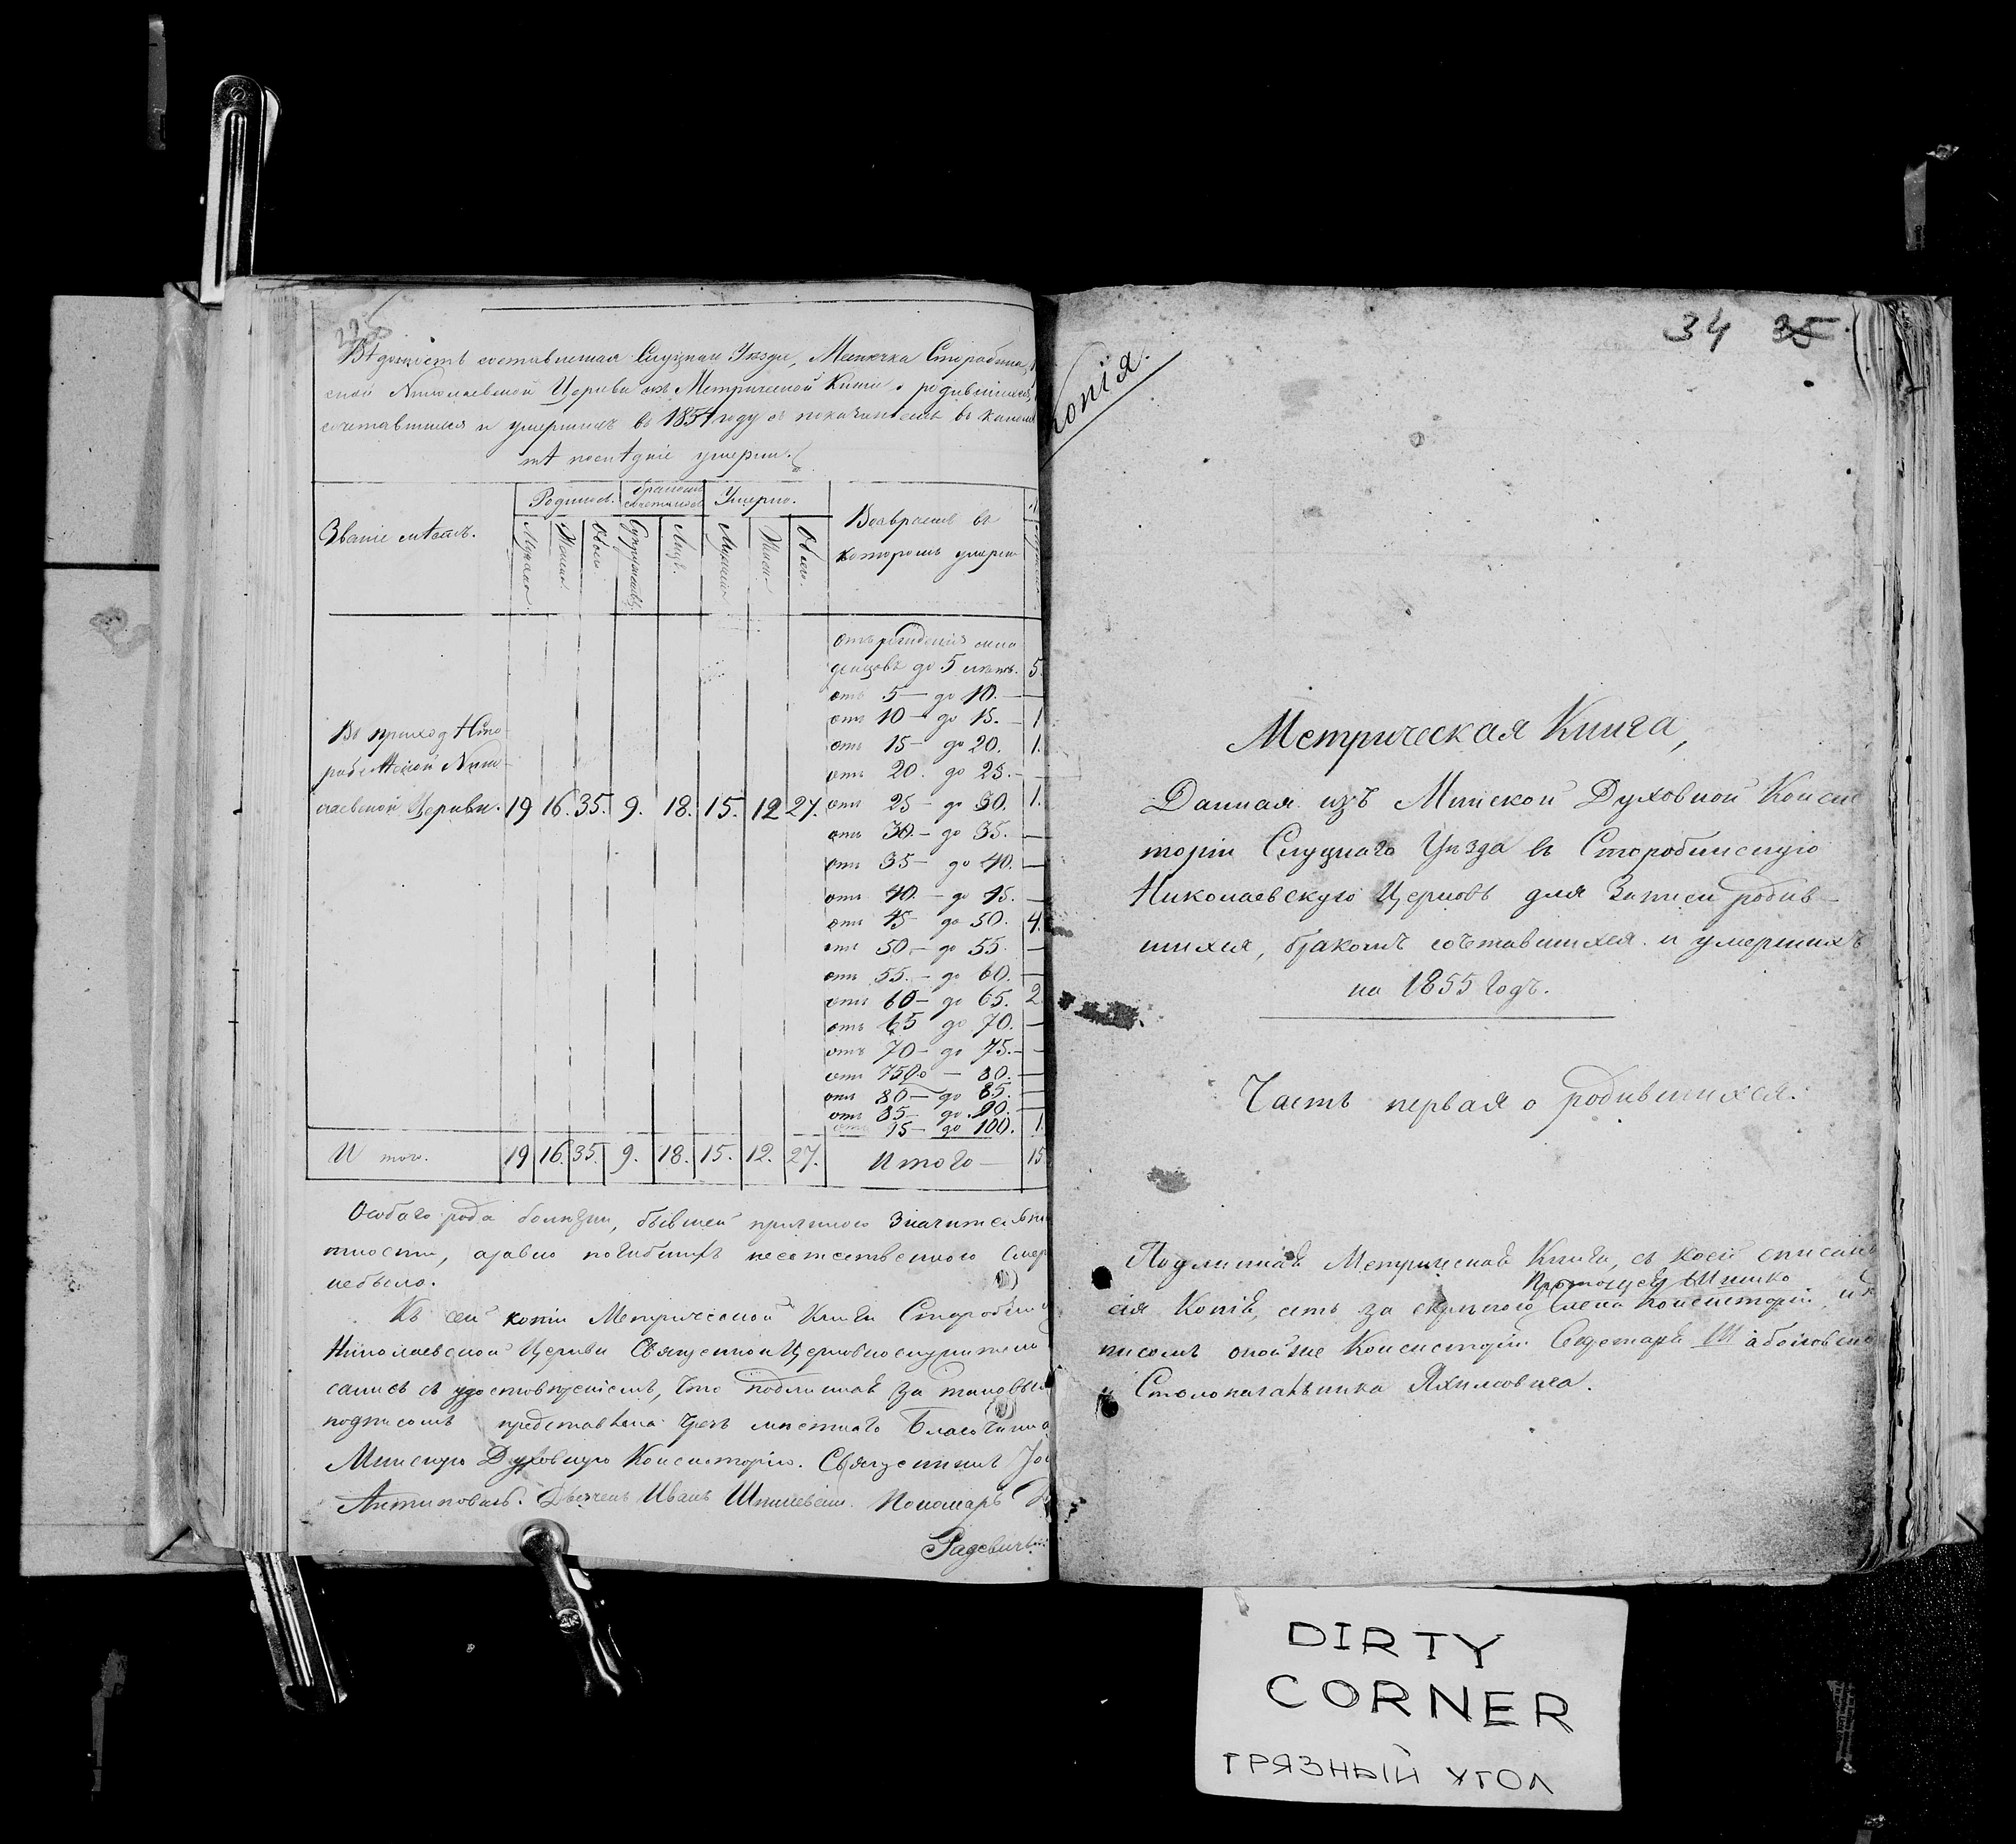 Вѣдомость составленная Слуцкаго Уѣзда, Мѣстечка Старобина
ской Николаевской Церкви изъ Метрической Книги о родившихся,
сочетавшихся и умершихъ въ 1854 году съ показаніемъ въ каковыя
лѣта послѣдніе умерли.
Званіе мѣстъ.
Родилось.
Бракомъ сочеталось
Умерло.
Возрастъ въ
которомъ умерли
Мужеска
Женска
Обоего.
Супружествъ
Лицъ.
Мужеска
Женска
Обоего.
отъ рожденія мла
денцовъ до 5 лѣтъ. 5.
отъ 5 — до 10. —
отъ 10 — до 15. — 1
отъ 15 — до 20. 1.
отъ 20. до 25. —
отъ 25 — до 30. 1.
отъ 30. — до 35. —
отъ 35 — до 40. —
отъ 40. — до 45. —
отъ 45 — до 50. 4.
отъ 50. — до 55. —
отъ 55. — до 60. —
отъ 60 — до 65. 2
отъ 65 до 70. —
отъ 70 — до 75. —
отъ 75 до — 80. —
отъ 80 — до 85. —
отъ 85 — до 90. —
отъ 95 — до 100. 1.
Въ приходѣ Ста
робинской Нико-
лаевской Церкви. 19 16. 35. 9. 18. 15. 12 27.
Итого. 19 16. 35. 9. 18. 15. 12. 27. Итого — 15
Особаго рода болѣзни, бывшей причиною значительной
тности, а равно погибшихъ неестественною смер
небыло.
Къ сей копіи Метрической Книги Старобин
Николаевской Церкви Священно и Церковнослужители
съ удостовѣреніемъ, что подлинная за таковымъ
подписомъ представлена чрезъ мѣстнаго Благочиннаго
Минскую Духовную Консисторію. Священникъ
Антиповичъ. Дьячекъ Иванъ Шпилевскій. Пономарь
Радевичъ.
Копія.
34 35
Метрическая Книга,
Данная изъ Минской Духовной Консис
торіи Слуцкаго Уѣзда въ Старобинскую
Николаевскую Церковь для Записи родив-
шихся, бракомъ сочетавшихся и умершихъ
на 1855 Годъ.
Часть первая о родившихся.
Подлинная Метрическая Книга, съ коей списана
сія Копія, есть за скрепою Члена Консисторіи
писомъ оной же Консисторіи Секретаря
и Столоначальника Яхимовича.
DIRTY
CORNER
ГРЯЗНЫЙ УГОЛ